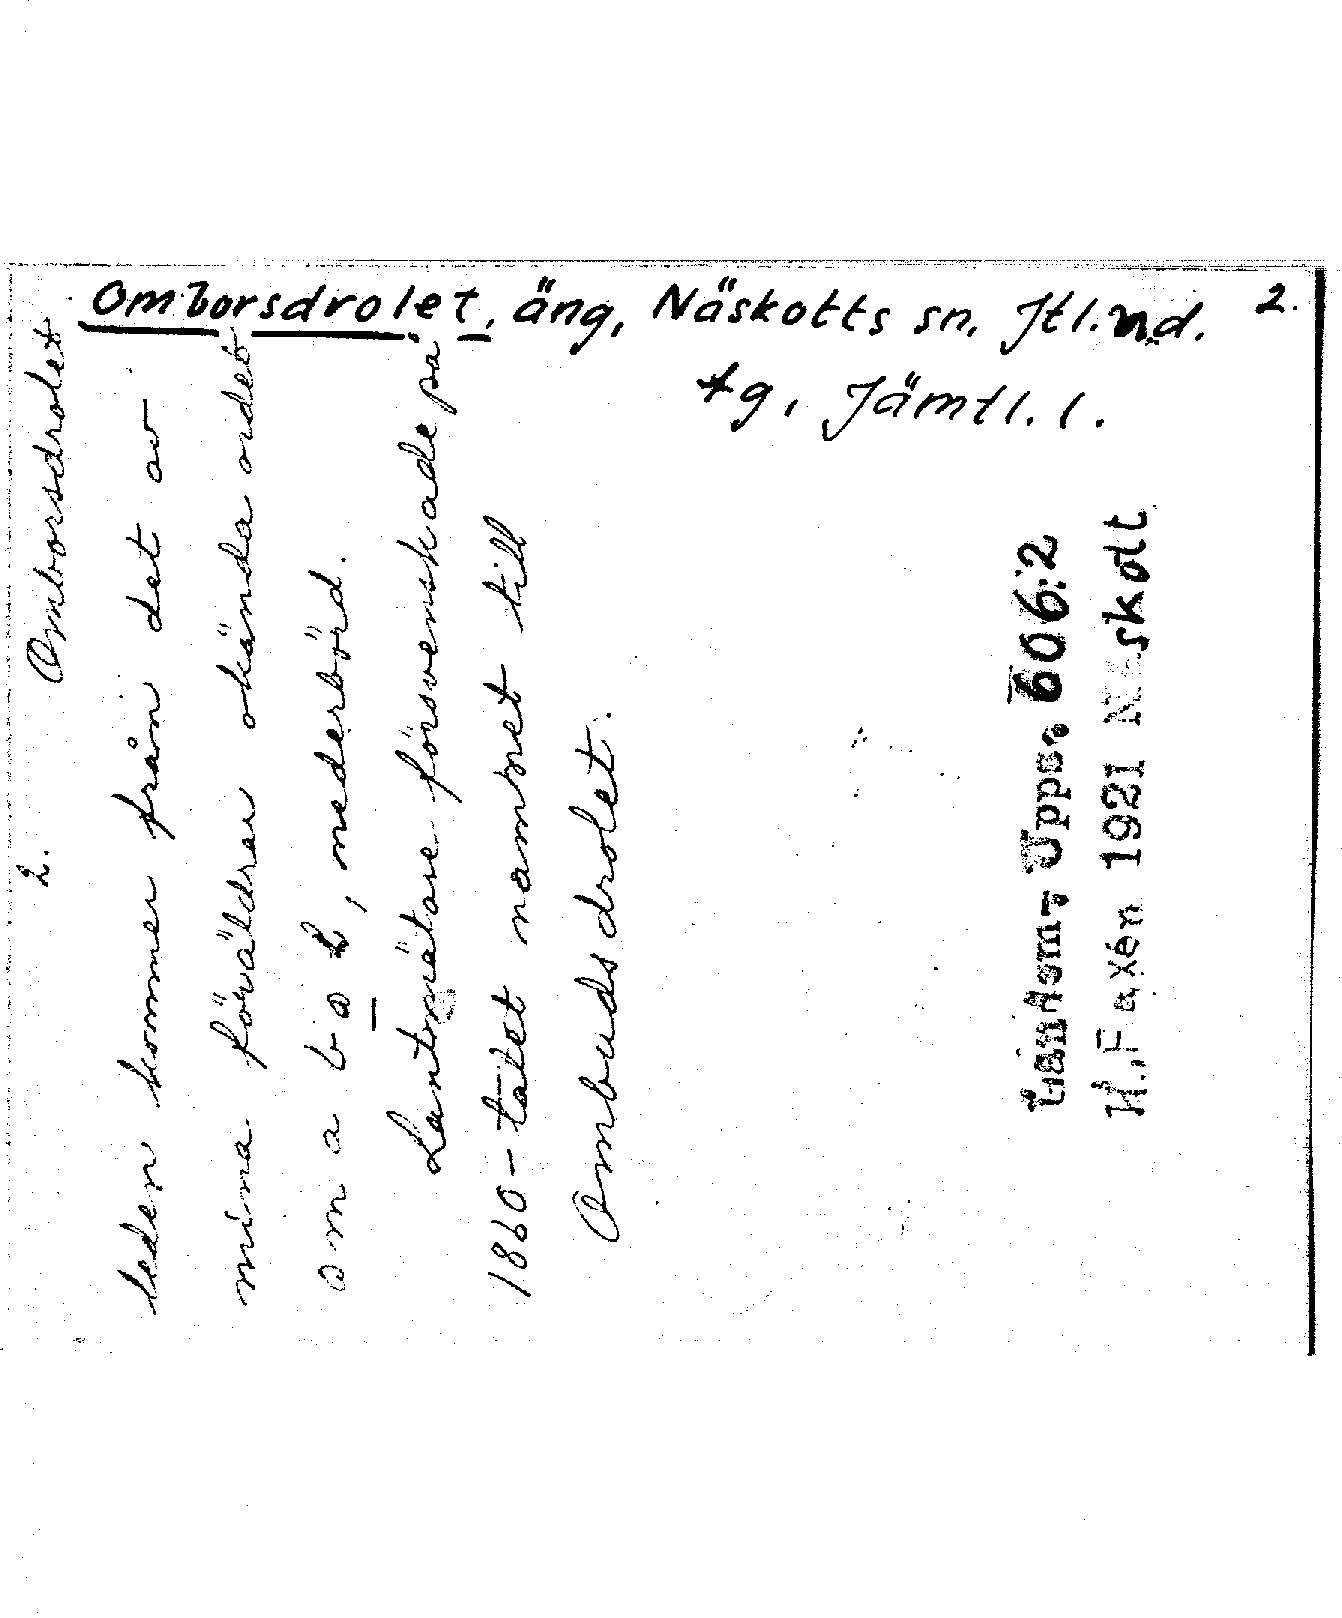 Omborsdrolet, äng, Näskotts sn. Jtl. n.d. 2.
tg, Jämtl. l.
2. Omborsdrolet
leden kommer från det av
mina föräldrar okända ordet
omaboL, nederbörd.
Lantmätare försvenskade på
1860-talet namnet till
Ombudsdrolet.
Landsm. Upps. 606:2
H. Faxén 1921 Näskott